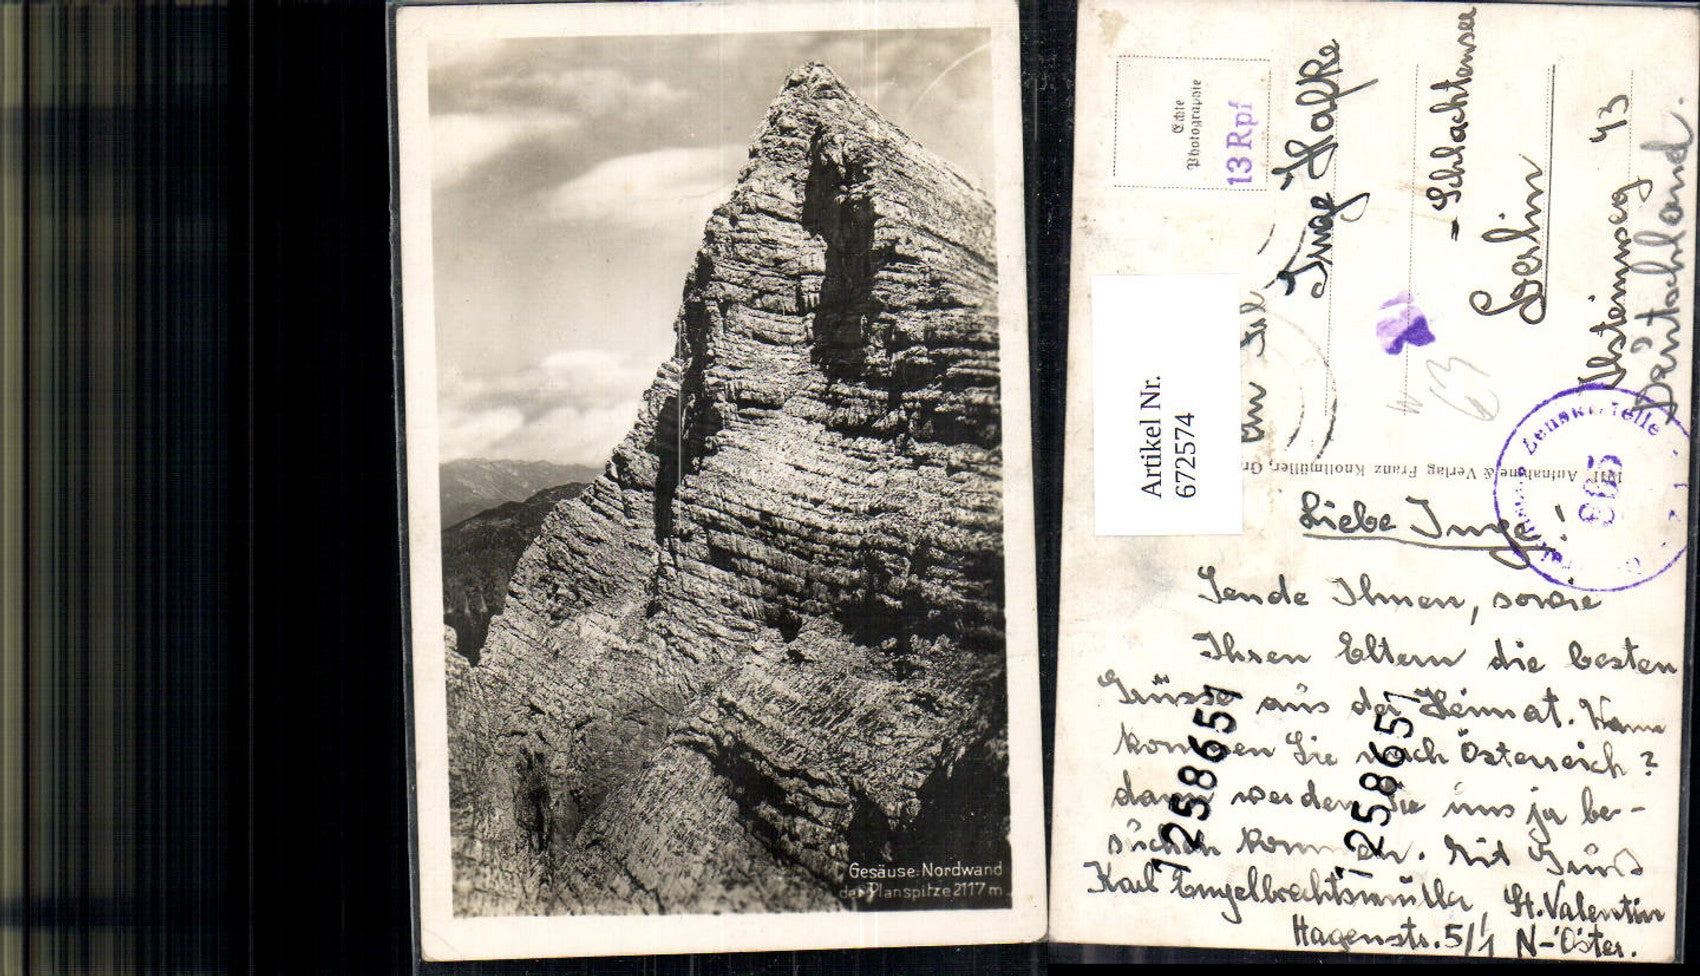 Gesäuse: Nordwand
der Planspitze 2117 m.
Echte
Photographie
13 Rpf
Inge Hafke
- Schlachtensee
Berlin
43
Deutschland.
63
Artikel Nr.
672574
Aufnahme & Verlag Franz Knollmüller, Gr
Zensurstelle
805
Liebe Inge!
Sende Ihnen, sowie
Ihren Eltern die besten
Grüsse aus der Heimat. Wann
kommen Sie nach Österreich?
dann werden Sie uns ja be-
suchen kommen. Mit Gruß
Karl Engelbrechtsmüller, St. Valentin
Hagenstr. 5/1 N-Öster.
1258651
1258651